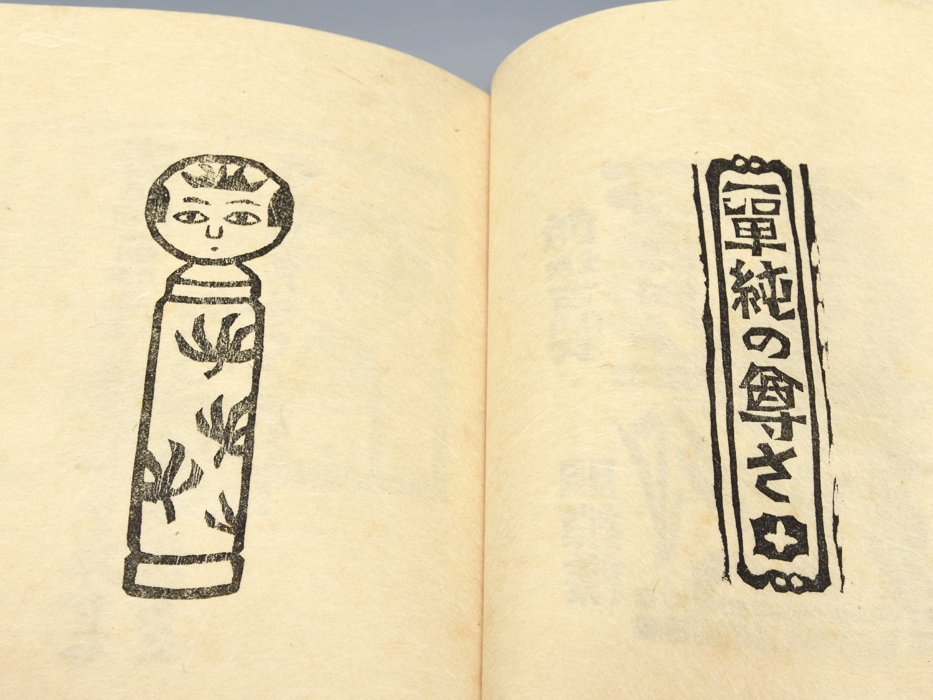 單純の尊さ